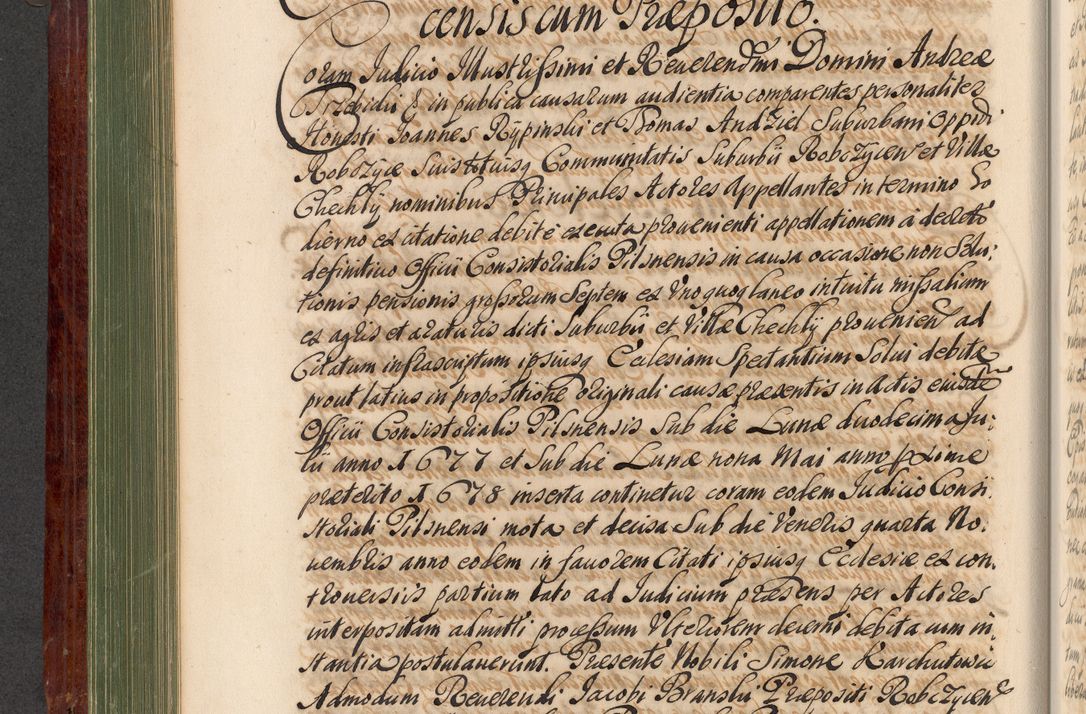 censis cum Præposito.
Coram Iudicio Illustrissimi et Reuerendmi Domini Andreæ
Trzebicki & in publica causarum audientia comparentes personaliter
Honesti Ioannes Rÿpinski et Thomas Andziel Suburbani Oppidi
Robczÿce Suis totiusq Communitatis Suburbii Robczÿcen et Villæ
Chechlÿ nominibus Principales Actores Appellantes in termino ho
dierno ex citatione debite exenta prouenienti appellationem a decreto
definitiuo Officii Consistorialis Pilsnensis in causa occasione non Solu:
tionis pensionis grossorum Septem ex Vnoquoq laneo intuitu missalium
ex agris et araturis dicti Suburbii et Villæ Chechlÿ prouenien ad
Citatum infrascriptum ipsiusq Ecclesiam Spectantium Solui debitæ
prout latius in propositione originali causæ præsentis in Actis eiusdem
Officii Consistorialis Pilsnensis Sub die Lunæ duodecima Iu:
lii anno 1677 et Sub die Lunæ nona Mai anno pxime
præterito 1678 inserta continetur coram eodem Iudicio Consi:
storiali Pilsnensi mota et decisa Sub die Veneris quarta No:
uembris anno eodem in fauorem Citati ipsiusq Ecclesiæ ex con:
trouersiis partium lato ad Iudicium præsens per Actores
interpositam admitti processum Vlteriorem decerni debita cum in:
stantia postulauerunt. Præsente Nobili Simone Karchutowicz
Admodum Reuerendi Iacobi Branski Præpositi Robczÿcen